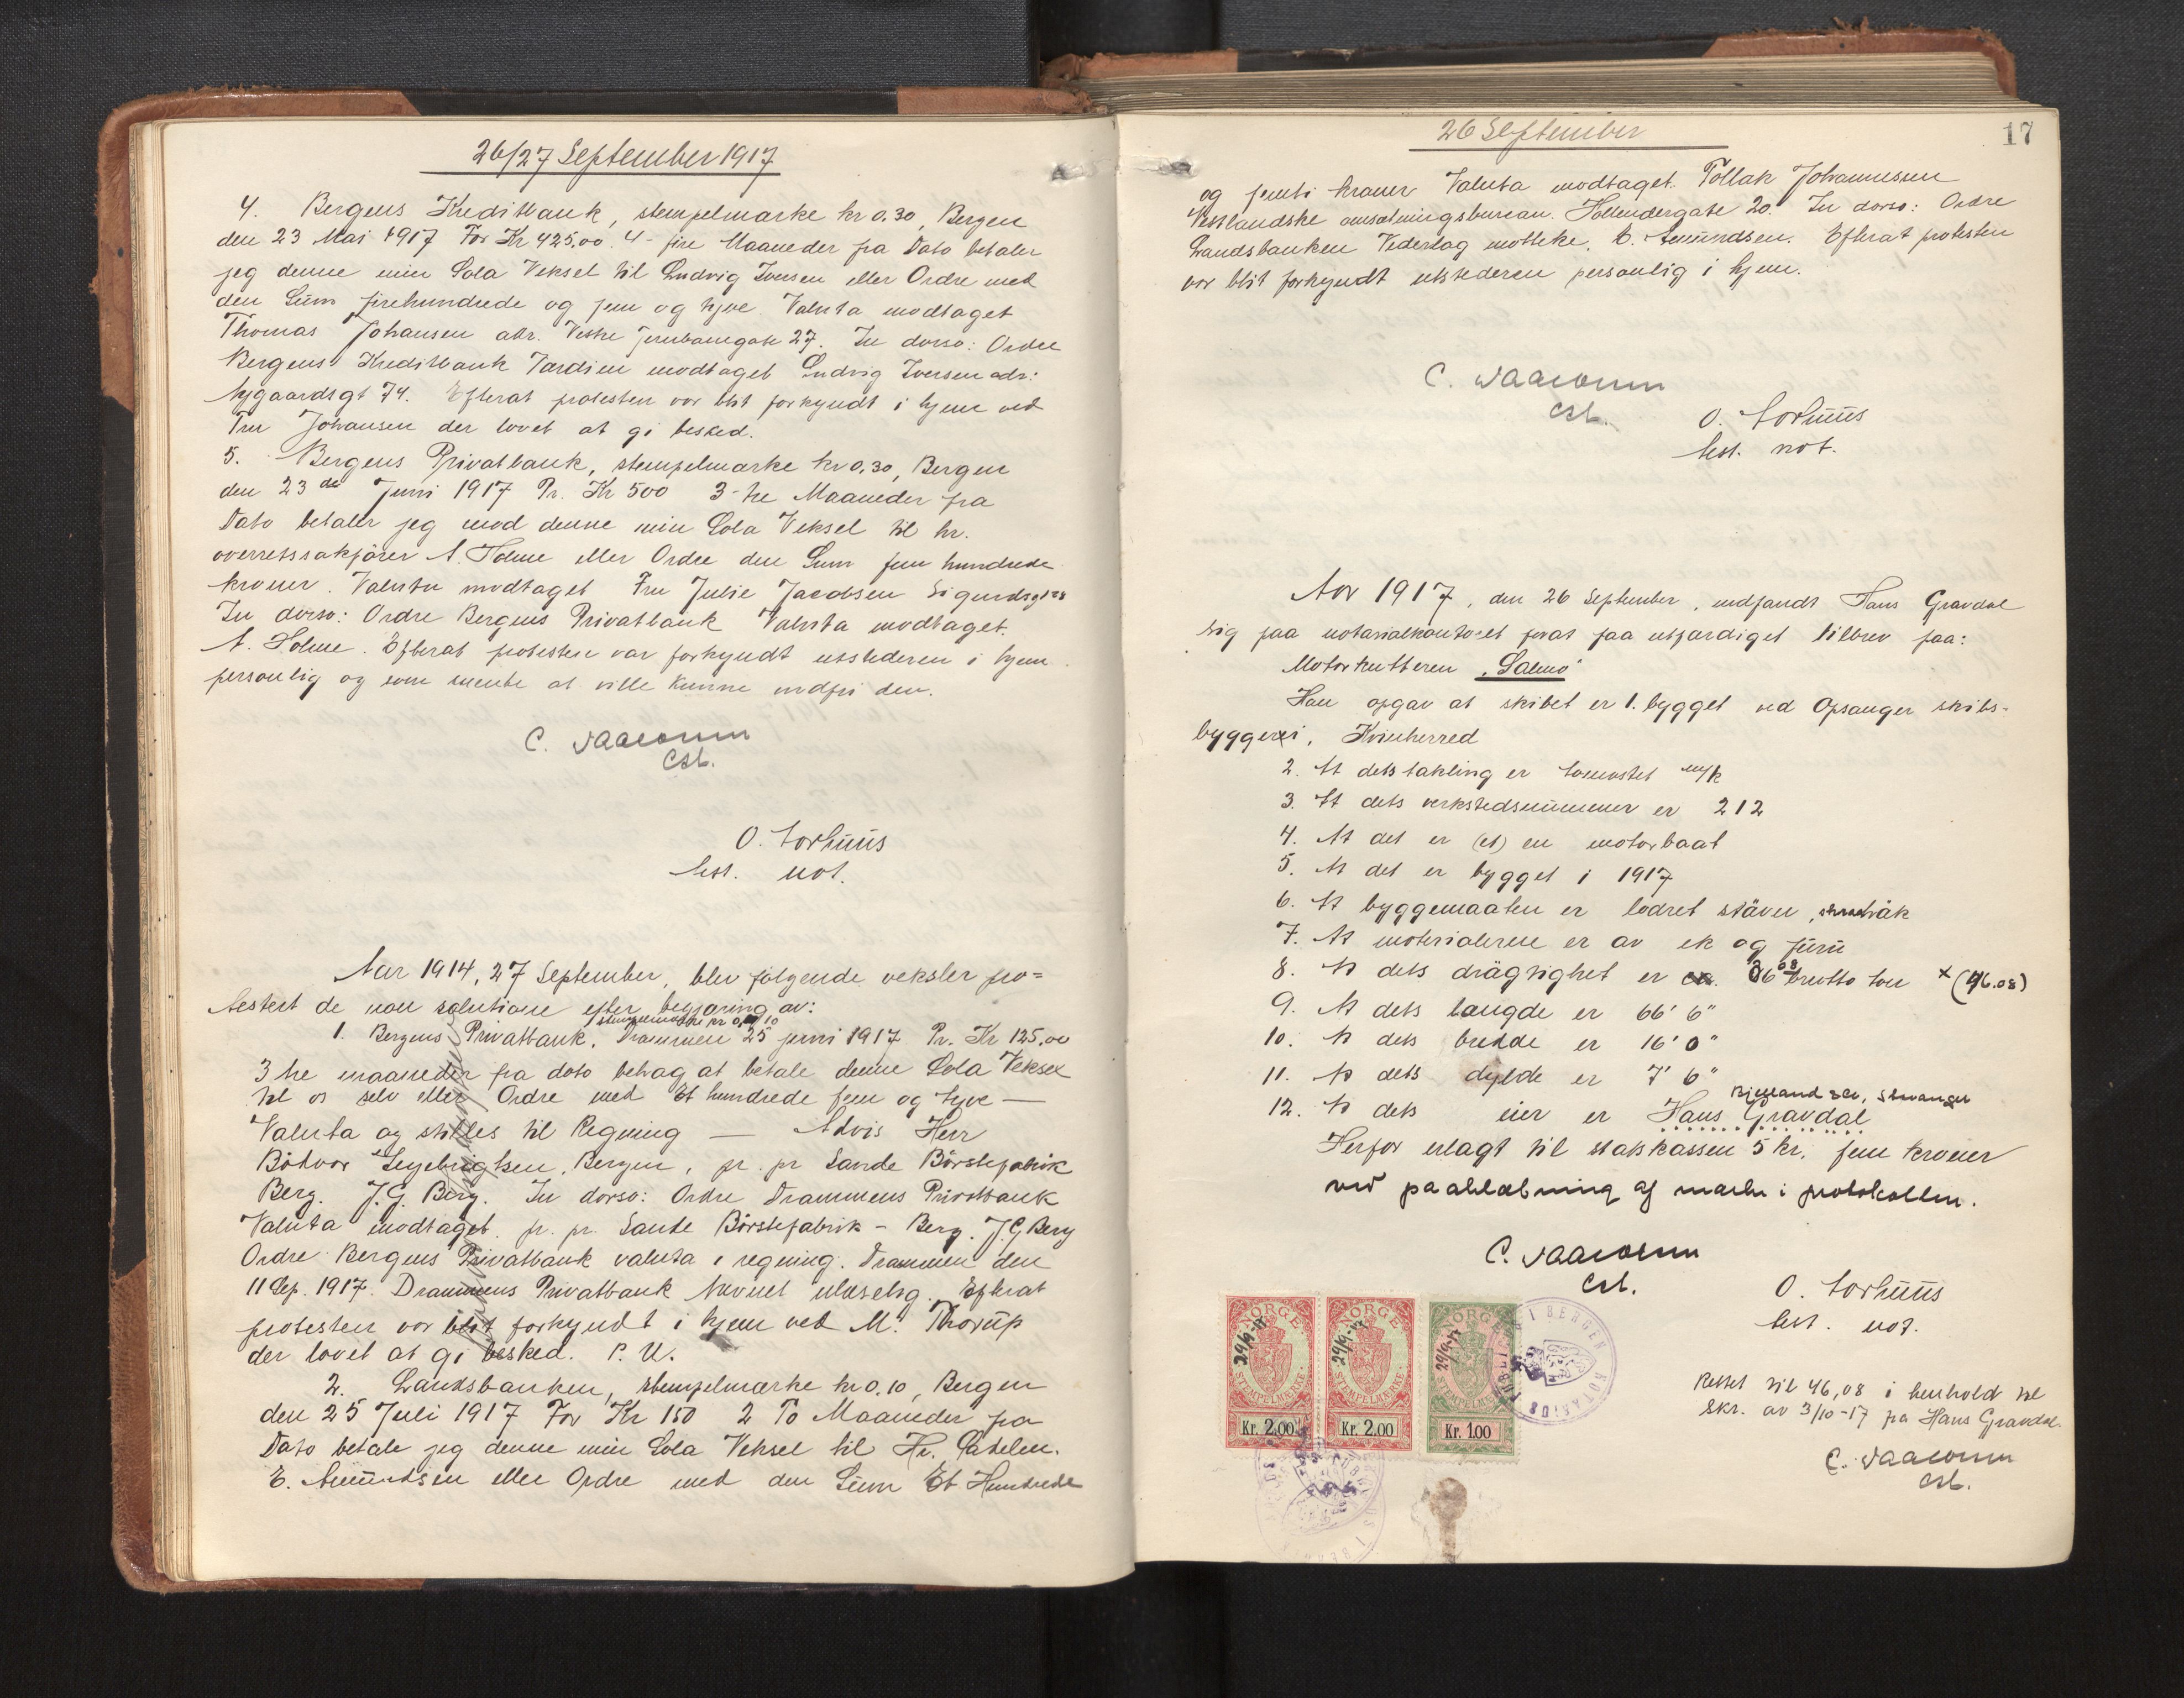 26/27 September 1917
4. Bergens Kreditbank, stempelmærke kr 0.30, Bergen
den 23 Mai 1917 For Kr 425,00. 4 - fire Maaneder fra Dato betaler
jeg denne min Sola Veksel til Ludvig Iversen eller Ordre med
den Sum firehundrede og fem og tyve. Valuta modtaget
Thomas Johansen adr. Vestre 27. In dorso: Ordre
Bergens Kreditbank Værdien modtaget Ludvig Iversen adr:
Nygaardsgt 74. Efterat protesten var blit forkyndt i hjem ved
Fru Johansen der lovet at gi besked.
5. Bergens Privatbank, stempelmærke kr 0,30, Bergen
den 23de Juni 1917 Pr. Kr 500 3- tre Maaneder fra
Dato betaler jeg mod denne min Sola Veksel til hr.
overretssakfører A. Holme eller Ordre den Sum fem hundrede
kroner. Valuta modtaget Fru Julie Jacobsen
In dorso: Ordre Bergens Privatbank Valuta modtaget.
A. Holme. Efterat protesten var forkyndt utstederen i hjem
personlig og som mente at ville kunne indfri den.
O. Torhuus
best. not.
Aar 1914, 27 September, blev følgende veksler pro=
testert de non solutione efter begjæring av:
stempelmærke kr 0, 10
1. Bergens Privatbank. Drammen 25 juni 1917 Pr. Kr 125.00
3 tre maaneder fra dato behag at betale denne Sola Veksel
til os selv eller Ordre med Et hundrede fem og tyve —
Valuta og stilles til Regning — Advis Herr
Bødvar Bergen, pr. pr Sande Børstefabrik
Berg. J. G. Berg. In dorso: Ordre Drammens Privatbank
Valuta modtaget. pr. pr. Sande Børstefabrik - Berg. J. G Berg
Ordre Bergens Privatbank valuta i regning. Drammen den
11 Sep. 1917. Drammens Privatbank Navnet ulæselig. Efterat
protesten var blit forkyndt i hjem ved M. Thorup
der lovet at gi besked. P. U.
2. Landsbanken, stempelmærke kr 0.10, Bergen
den 25 Juli 1917 For Kr 150 2 To Maaneder fra
Dato betale jeg denne min Sola Veksel til Hr.
E. Amundsen eller Ordre med den Sum Et Hundrede
26 September
17
og femti kroner Valuta modtaget. Tollak Johannesen
Vestlandske omsætningsbureau. Hollendergate 20. In dorso: Ordre
Landsbanken Vederlag mottke. E. Amundsen. Efterat protesten
var blit forkyndt utstederen personlig i hjem.
O. Torhuus
best. not.
Aar 1917, den 26 September, indfandt Hans Gravdal
sig paa notarialkontoret forat faa utfærdiget bilbrev paa:
Motorkutteren "Salmo"
Han opgav at skibet er 1. bygget ved Opsanger skibs-
byggeri, Kvinherred
2. At dets takling er tomastet
3. At dets verkstedsnummer er 212
4. At det er (et) en motorbaat
5. At det er bygget i 1917
6. At byggemaaten er lodret stävn,
7. At materialerne er av ek og furu
8. At dets drägtighet er 36 08 brutto ton x (46.08)
9. At dets længde er 66' 6"
10. At dets bredde er 16' 0"
11. At dets dybde er 7' 6"
12. At dets eier er Hans Gravdal
Stavanger
Herfor erlagt til statskassen 5 kr. fem kroner
ved paaklæbning af marke i protokollen.
O. Torhuus
best. not.
NORGE
29/9-17
STEMPELMÆRKE
Kr. 2.00
NORGE
29/9-17
STEMPELMÆRKE
Kr. 2.00
NORGE
29/9-17
STEMPELMÆRKE
Kr. 1.00
NOTARIUS PUBLICUS I BERGEN
Rettet til 46,08 i henhold til
Skr. av 3/10-17 fra Hans Gravdal.